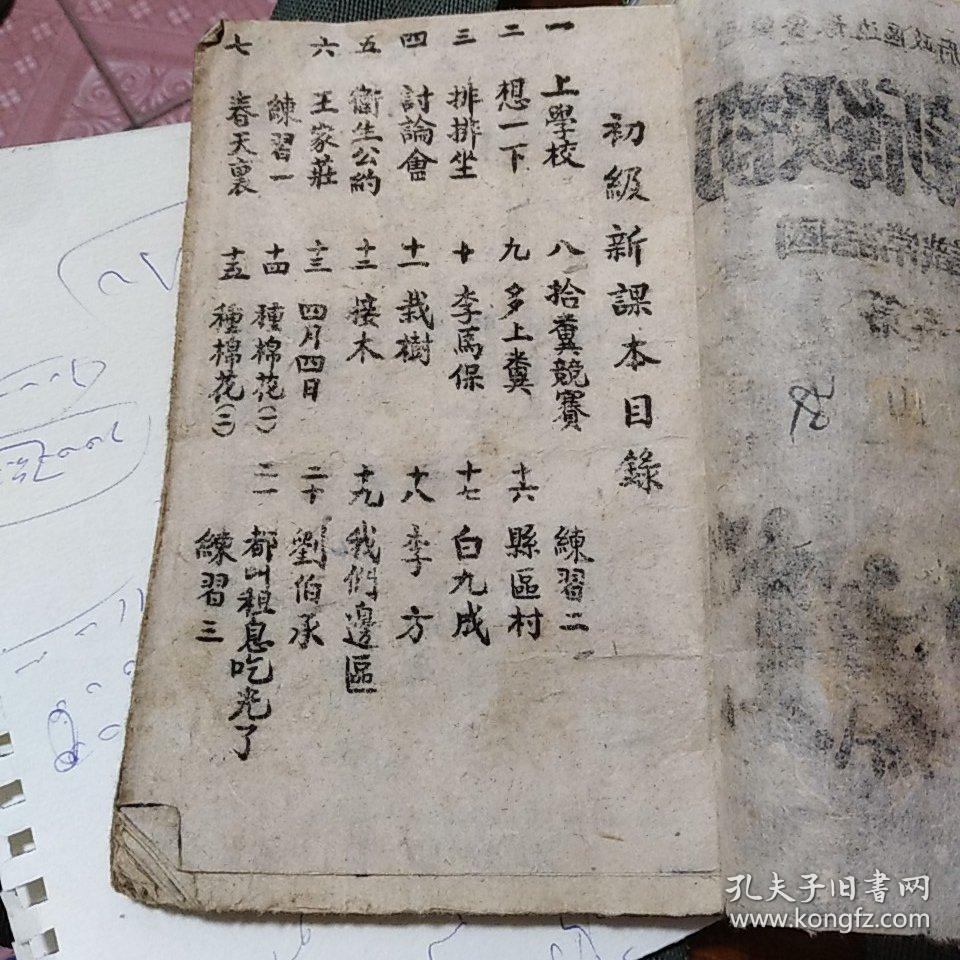 初級新課本目錄
一 上學校
二 想一下
三 排排坐
四 討論會
五 衛生公約
六 王家莊
練習一
七 春天裏
八 拾糞競賽
九 多上糞
十 李馬保
十一 栽樹
十二 接木
十三 四月四日
十四 種棉花(一)
十五 種棉花(二)
練習二
十六 縣區村
十七 白九成
十八 李方
十九 我們邊區
二十 劉伯承
二一 都叫租息吃光了
練習三
孔夫子旧书网
www.kongfz.com